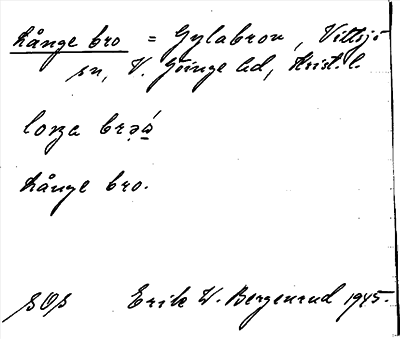 Långe bro = Gylabron, Vittsjö
sn, V. Göinge hd, Krist. l.
långe bro.
SOS Erik W. Bergenrud 1945.